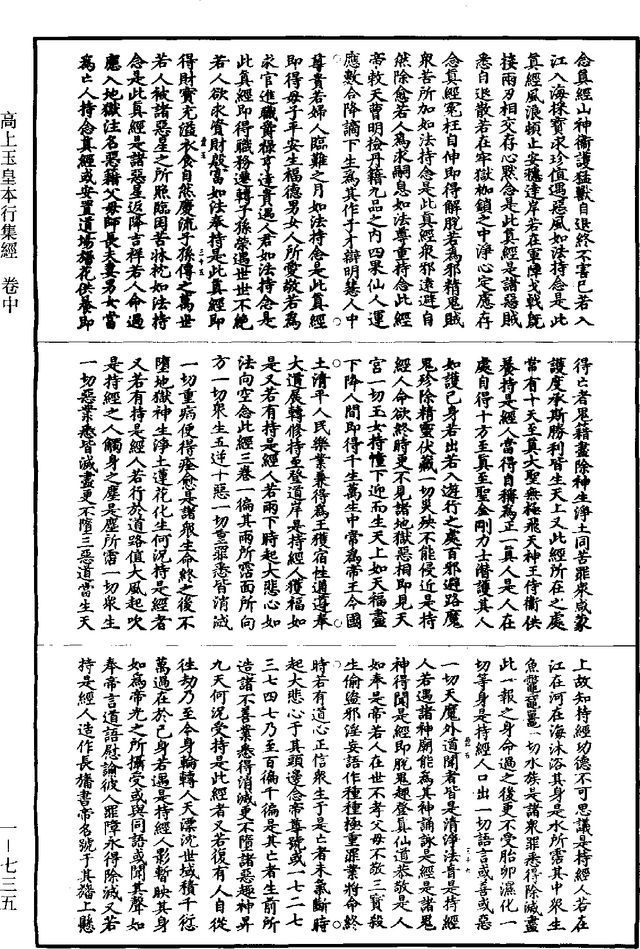 念真經山神衛護猛獸自退終不害已若入
江入海採寶求珍值遇惡風如法持念是此
真經風浪頓止安穩達岸若在軍陣戈戟既
接兩刃相交存心默念是此真經是諸惡賊
悉自退散若在牢獄枷鎖之中淨心定慮存
念真經冤枉自伸即得解脫若為邪精鬼賊
衆苦所加如法持念是此真經衆邪遠避自
然除愈若人為求嗣息如法尊重持念此經
帝敕天曹明檢丹籍九品之內四果仙人運
應數合降謫下生為其作子才辯明慧人中
尊貴若婦人臨難之月如法持念是此真經
即得母子平安生福德男女人所愛敬若為
求官進職爵祿亨達貴遇人君如法持念是
此真經即得職務遷轉子孫榮遇世世不絕
若人欲求資財殷富如法奉持是此真經即
三十五
得財寶充溢衣食自然慶流子孫傳之萬世
若人被諸惡星之所照臨困苦牀枕如法持
念是此真經是諸惡星返降吉祥若人命過
應入地獄注名惡籍父母師長夫妻男女當
為亡人持念真經或安置道場旛花供養即
得亡者鬼籍盡除神生淨土同苦罪衆咸蒙
護度承斯勝利皆生天上又此經所在之處
常有十天至真大聖無極飛天神王侍衛供
養持是經人當得自稱為正一真人是人在
處自得十方至真至聖金剛力士潛護其人
如護己身若出若入遊行之處百邪避路魔
鬼珍除精靈伏竄一切災殃不能侵近是持
經人命欲終時更不見諸地獄惡相即見天
宮一切玉女持幢下迎而生天上如天福盡
下降人間即得千生萬生中常為帝王令國
土清平人民樂業兼得為王獲宿性通遵奉
大道展轉修持至登道岸是持經人獲福如
是又若有持是經人若雨下時起大悲心如
法向空念此經三卷一徧其雨所霑面所向
方一切衆生五逆十惡一切重罪悉皆消滅
一切重病便得痊愈是諸衆生命終之後不
墮地獄神生淨土蓮花化生何況持是經者
又若有持是經人若行於道路值大風起吹
是持經之人觸身之塵是塵所霑一切衆生
一切惡業悉皆滅盡更不墮三惡道當生天
上故知持經功德不可思議是持經人若在
江在河在海沐浴其身是水所霑其中衆生
魚鼈黿鼉一切水族是諸衆罪悉得除滅盡
此一報之身命過之後更不受胎卵濕化一
切等身是持經人口出一切語言或善或惡
三十六
一切天魔外道聞者皆是清淨法音是持經
人若遇諸神廟能為其神誦詠是經是諸鬼
神得聞是經即脫鬼趣登真仙道恭敬是人
如奉是帝若人在世不孝父母不敬三寶殺
生偷盜邪淫妄語作種種極重罪業將命終
時若有道心正信衆生于是亡者未氣斷時
起大悲心于其頭邊念帝尊號或一七二七
三七四七乃至百徧千徧是其亡者生前所
造諸不善業悉得消滅更不墮諸惡趣神昇
九天何況受持是此經者又若復有人自從
往劫乃至今身輪轉人天漂沈世域積千愆
萬過在於己身若遇是持經人影暫映其身
如為帝光之所攝受或與同語或聞其聲如
奉帝言道語慰諭彼人罪障永得除滅又若
持是經人造作長旛書帝名號于其旛上懸
高上玉皇本行集經 卷中
一-七三五